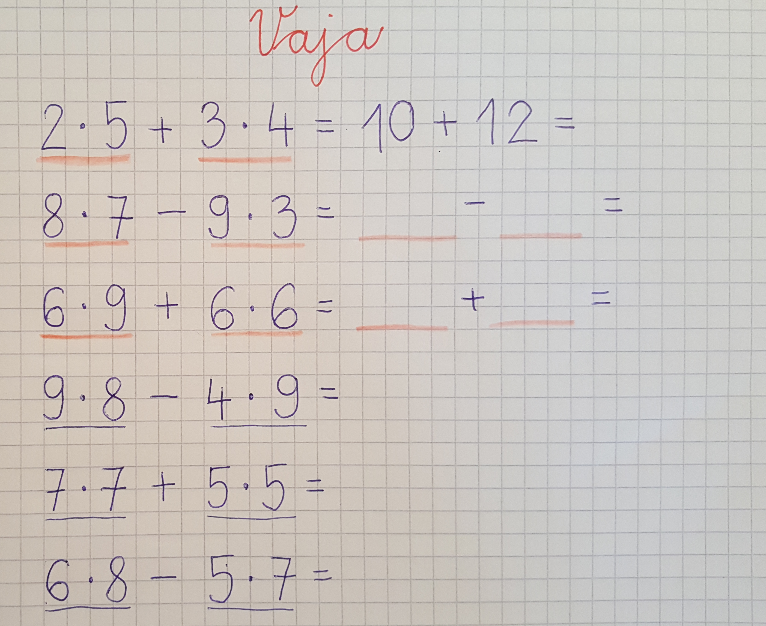 Vaja
2·5 + 3·4 = 10 + 12 =
8·7 - 9·3 = ___ - ___ =
6·9 + 6·6 = ___ + ___ =
9·8 - 4·9 =
7·7 + 5·5 =
6·8 - 5·7 =